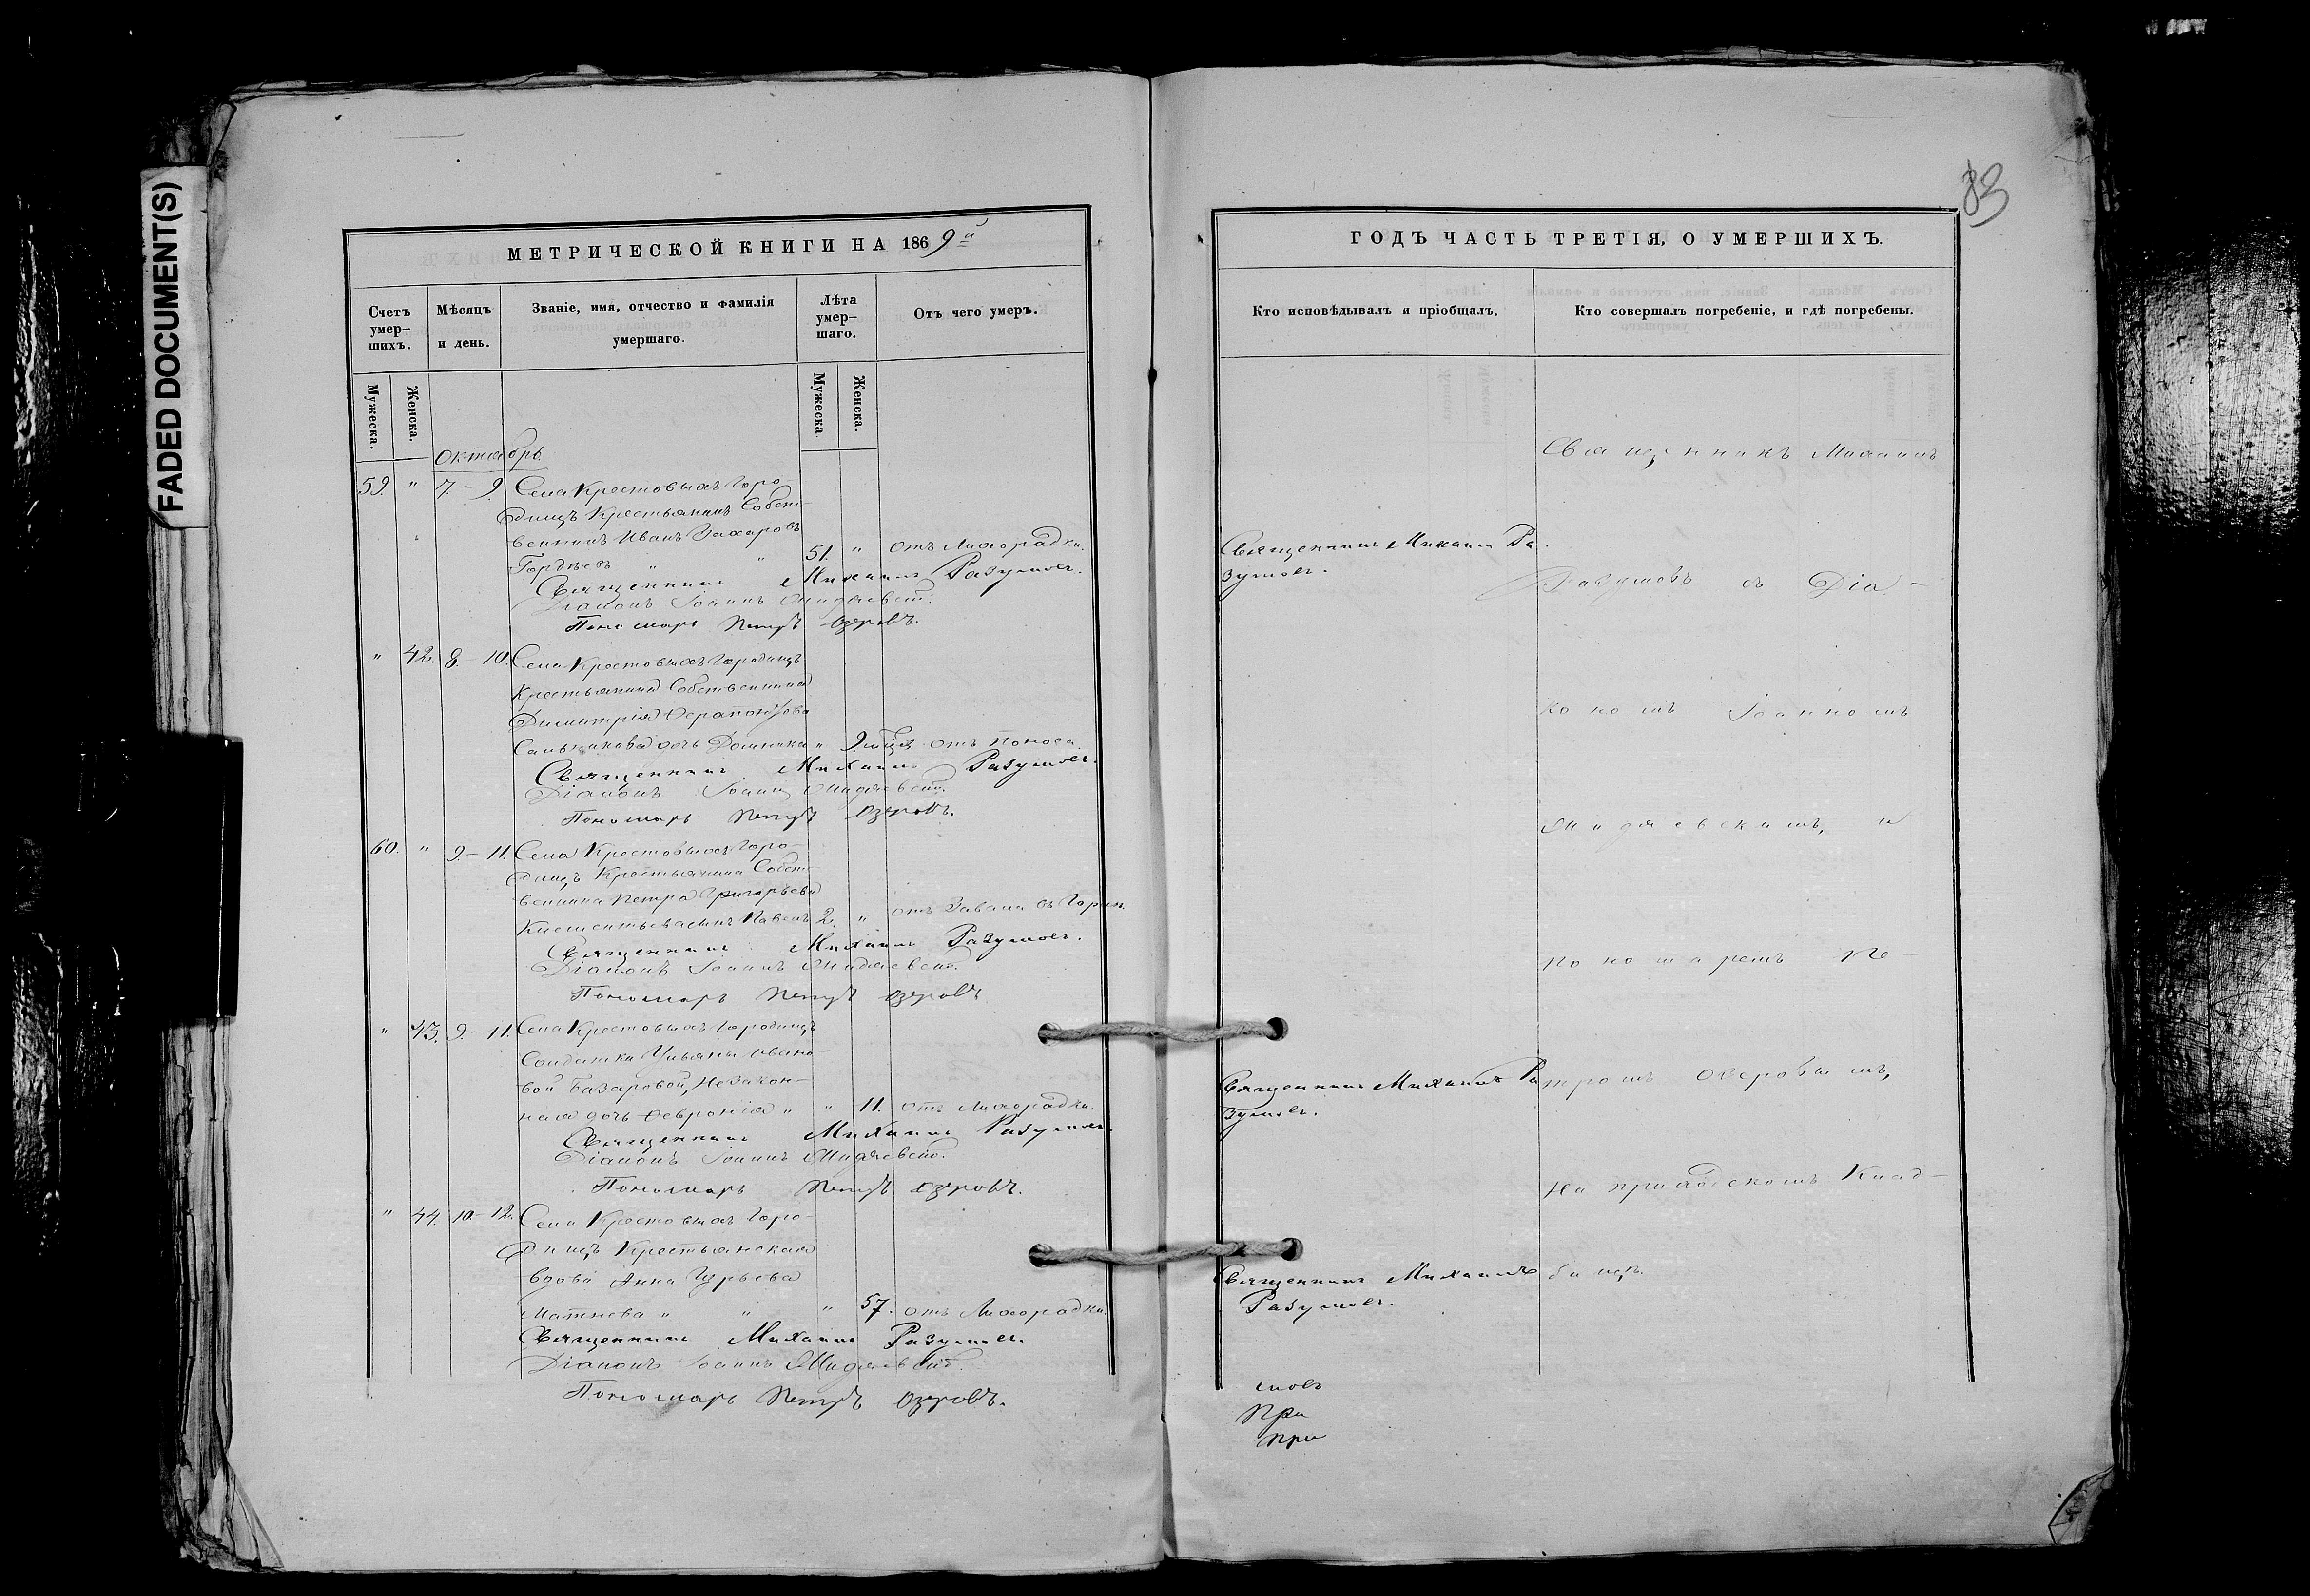 FADED DOCUMENT(S)
83
МЕТРИЧЕСКОЙ КНИГИ НА 1869й
Счетъ умер-шихъ.
Мѣсяцъ и день.
Званіе, имя, отчество и фамилія умершаго.
Лѣта умер-шаго.
Отъ чего умеръ.
Мужеска.
Женска.
Мужеска.
Женска.
Октябрь.
59. " 7.–9. Села Крестовыхъ Горо-
дищъ Крестьянинъ Собст-
венникъ Иванъ Захаровъ
Гордѣевъ " " 51. " отъ Лихорадки.
Священникъ Михаилъ Разумовъ.
Діаконъ Іоаннъ
Пономарь Петръ Озеровъ.
" 42. 8.–10. Села Крестовыхъ Городищъ
Крестьянина Собственника
Димитрія Ферапонтова
дочь Домника " 9 мѣц. отъ Поноса.
Священникъ Михаилъ Разумовъ.
Діаконъ Іоаннъ
Пономарь Петръ Озеровъ.
60. " 9.–11. Села Крестовыхъ Горо-
дищъ Крестьянина Собст-
венника Петра Григорьева
Клементьева сынъ Павелъ 2. " отъ Завала въ Горлѣ.
Священникъ Михаилъ Разумовъ.
Діаконъ Іоаннъ
Пономарь Петръ Озеровъ.
" 43. 9.–11. Села Крестовыхъ Городищъ
Солдатки Ульяны Ивано-
вой Базаровой, Незакон-
ная дочь Феѵронія " " 11. отъ Лихорадки.
Священникъ Михаилъ Разумовъ.
Діаконъ Іоаннъ
Пономарь Петръ Озеровъ.
" 44. 10.–12. Села Крестовыхъ Горо-
дищъ Крестьянская
вдова Анна Гурьева
" " " 57. отъ Лихорадки.
Священникъ Михаилъ Разумовъ.
Діаконъ Іоаннъ
Пономарь Петръ Озеровъ.
ГОДЪ ЧАСТЬ ТРЕТІЯ, О УМЕРШИХЪ.
Кто исповѣдывалъ и пріобщалъ.
Кто совершалъ погребеніе, и гдѣ погребены.
Священникъ Михаилъ Ра-
зумовъ.
Священникъ Михаилъ Ра
зумовъ.
Священникъ Михаилъ
Разумовъ.
Священникъ Михаилъ
Разумовъ съ Діа-
кономъ Іоанномъ
и
Пономаремъ Пе-
тромъ Озеровымъ,
На приходскомъ Клад-
бищѣ.
мовъ
При
при